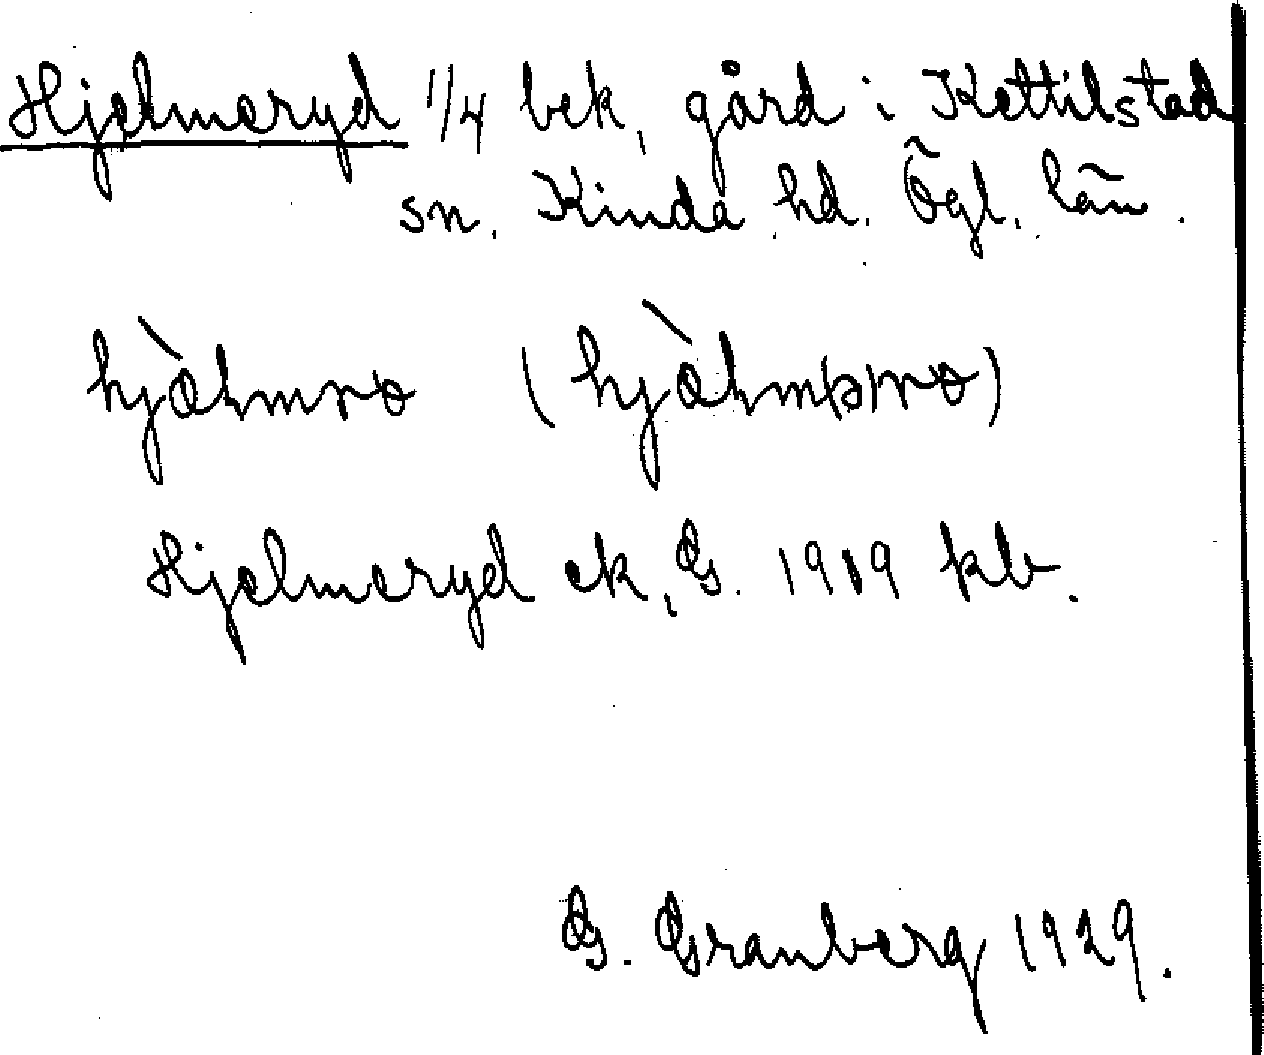 Hjelmeryd 1/4 bek, gård i Kettilstad
sn. Kinda hd. Ögl. län.
hjàlmro (hjàlm(ə)ro)
Hjelmeryd ek, G. 1919 kb.
G. Granberg 1929.